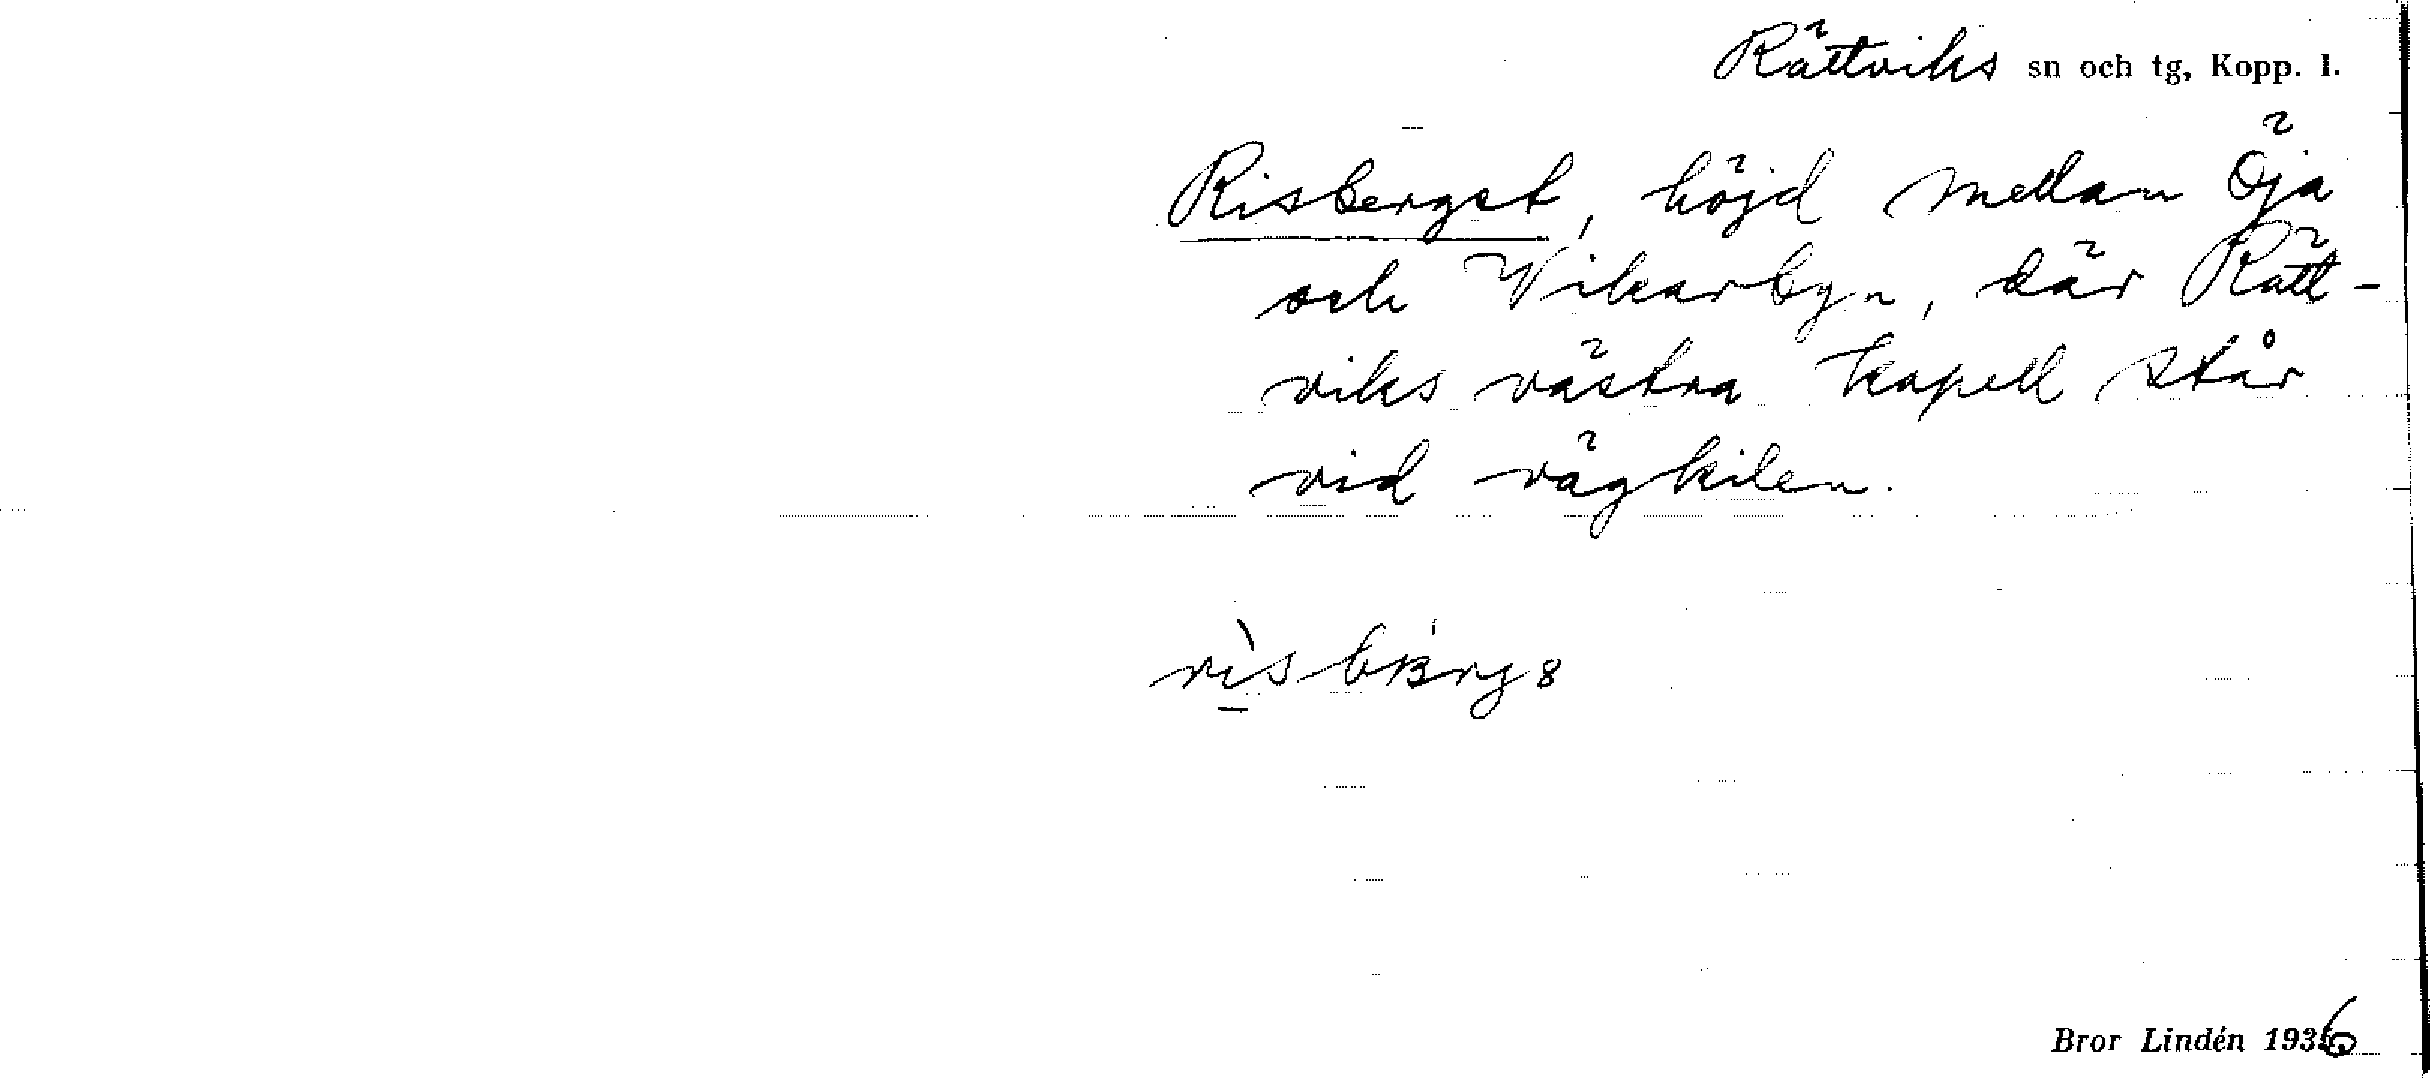 Rättviks sn och tg, Kopp. l.
Risberget, höjd mellan Öja
och Vikarbyn, där Rätt-
viks västra kapell står
vid vägkilen.
Bror Lindén 1936